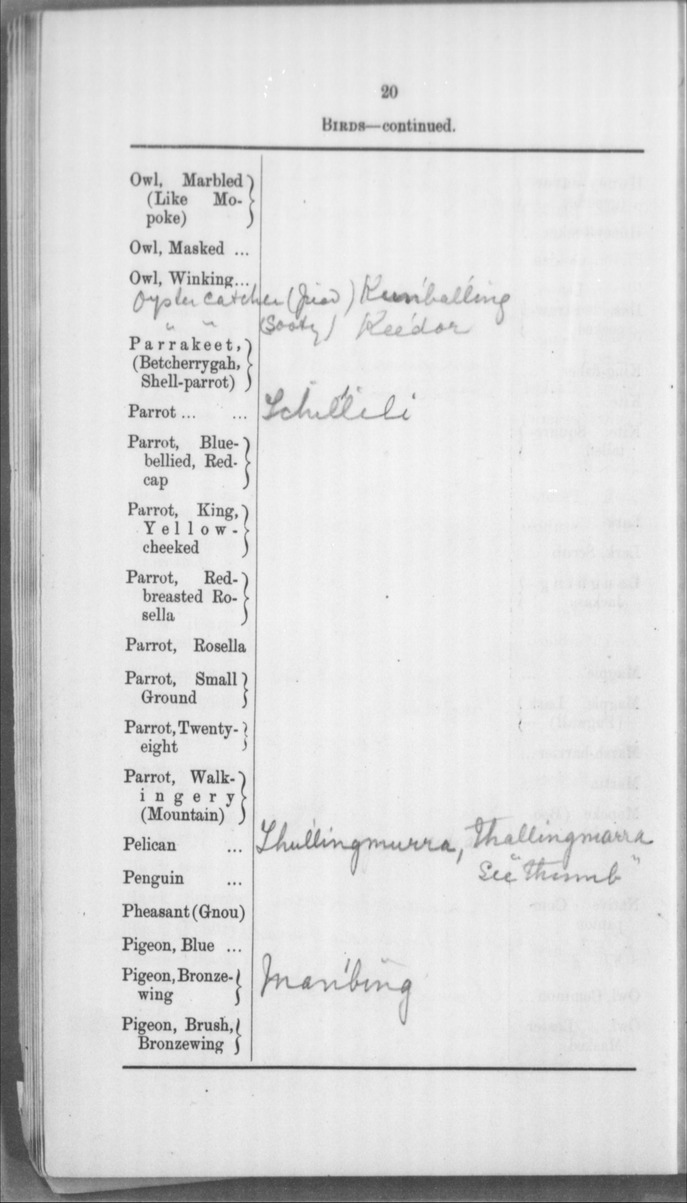 20
BIRDS—continued.
Owl, Marbled
(Like Mo-
poke)
Owl, Masked ...
Owl, Winking...
Oystercatcher (Pied) Kunn'balling
" " (Sooty) Kee'dor
Parrakeet,
(Betcherrygah,
Shell-parrot)
Parrot ... ... Tchil'lili
Parrot, Blue-
bellied, Red-
cap
Parrot, King,
Yellow-
cheeked
Parrot, Red-
breasted Ro-
sella
Parrot, Rosella
Parrot, Small
Ground
Parrot, Twenty-
eight
Parrot, Walk-
ingery
(Mountain)
Pelican ... Thul'lingmurra, Thallingmarra
See "Thumb"
Penguin ...
Pheasant (Gnou)
Pigeon, Blue ...
Pigeon, Bronze-
wing Mari'bing
Pigeon, Brush,
Bronzewing